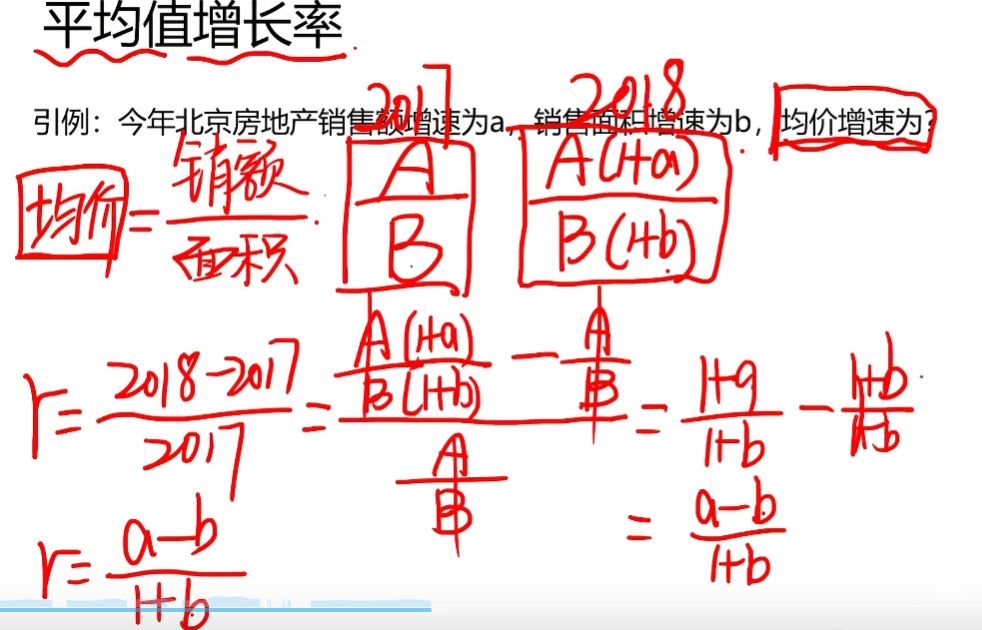 平均值增长率
引例：今年北京房地产销售额增速为a，销售面积增速为b，均价增速为？
2017 2018
均价 = 销额/面积 A/B A(1+a)/B(1+b)
r = (2018-2017)/2017 = (A(1+a)/B(1+b) - A/B)/(A/B) = (1+a)/(1+b) - (1+b)/(1+b)
= (a-b)/(1+b)
r = (a-b)/(1+b)